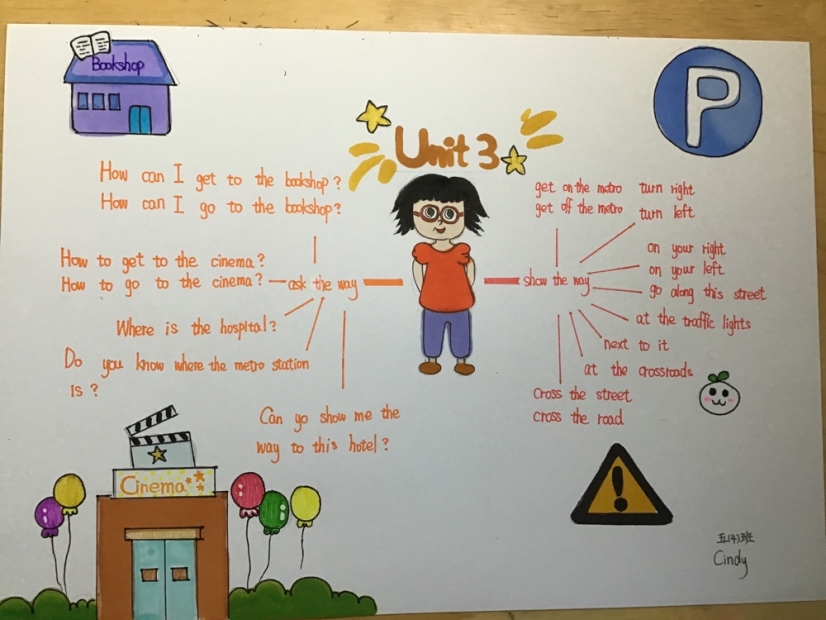 Bookshop
P
Unit 3
How can I get to the bookshop?
How can I go to the bookshop?
How to get to the cinema?
How to go to the cinema?
ask the way
Where is the hospital?
Do you know where the metro station
is?
Can yo show me the
way to this hotel?
show the way
get on the metro
get off the metro
turn right
turn left
on your right
on your left
go along this street
at the traffic lights
next to it
at the crossroads
cross the street
cross the road
Cinema
!
五(4)班
Cindy